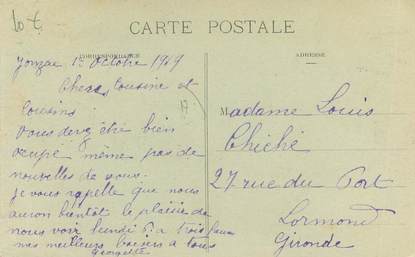 10 €
CARTE POSTALE
CORRESPONDANCE
ADRESSE
Jonzac 1er Octobre 1919
Chers Cousine et
Cousins
vous devez être bien
occupé même pas de
nouvelles de vous.
Je vous rappelle que nous
auron bientôt le plaisir de
nous voir lundi 6 a trois
mes meilleurs baisers a tous
Georgette
Madame Louis
Chiché
27 rue du Port
Lormond
Gironde